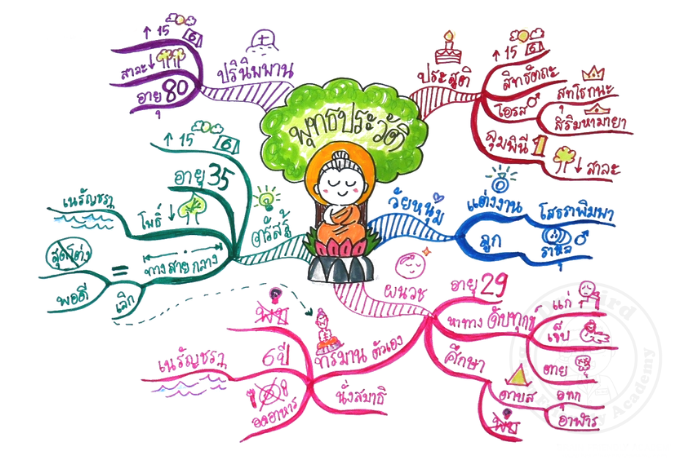 พุทธประวัติ
ประสูติ
↑ 15 6
สิทธัตถะ
โอรส ♂
สุทโธทนะ
สิริมหามายา
ลุมพินี 1
↓ สาละ
วัยหนุ่ม
แต่งงาน
โสธราพิมพา
ลูก
ราหุล ♂
ผนวช
อายุ 29
หาทาง ดับทุกข์
แก่
เจ็บ
ตาย
ศึกษา
ดาบส
อุทก
อาฬาร
พบ
ทรมาน ตัวเอง
พบ
6 ปี
เนรัญชรา
อดอาหาร
นั่งสมาธิ
ตรัสรู้
↑ 15 6
อายุ 35
โพธิ์ ↓
เนรัญชรา
ทางสายกลาง
=
สุดโต่ง
พอดี
เลิก
ปรินิพพาน
↑ 15 6
สาละ ↓
อายุ 80
Academy